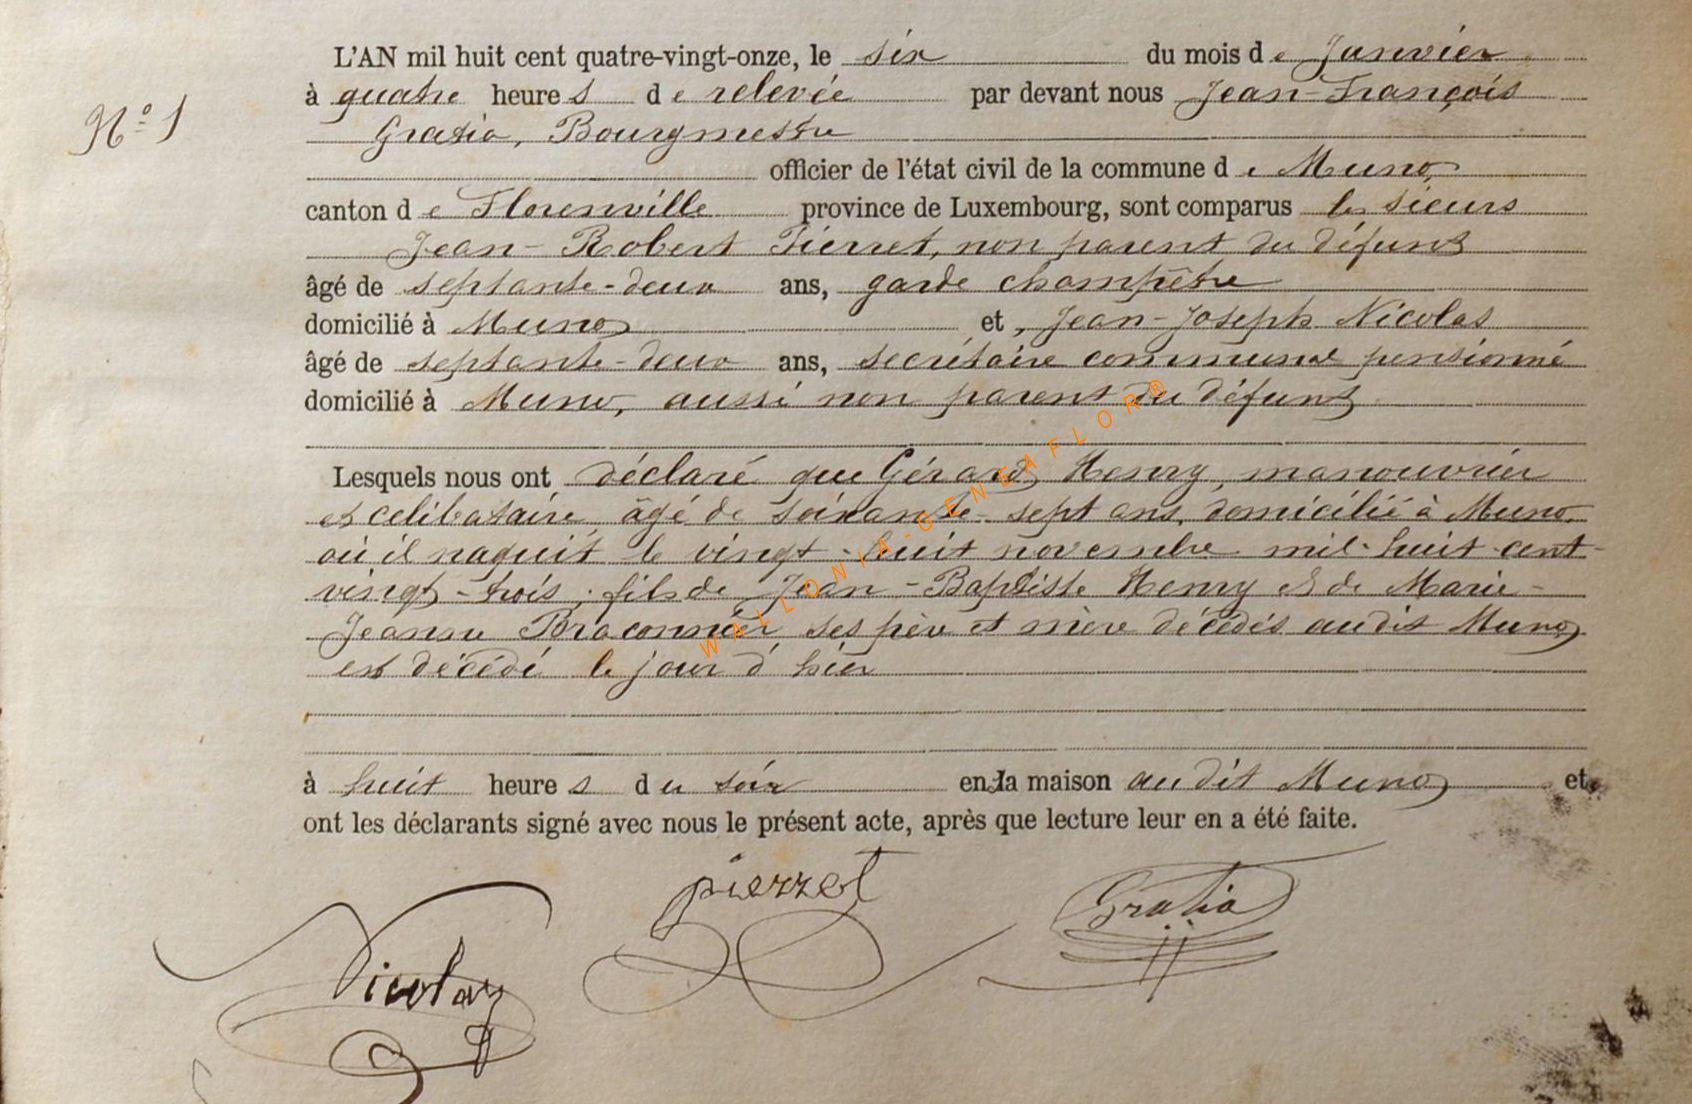 L'AN mil huit cent quatre-vingt-onze, le six du mois de Janvier
à quatre heures de relevée par devant nous Jean-François
N° 1
Gratia, Bourgmestre
officier de l'état civil de la commune de Muno,
canton de Florenville province de Luxembourg, sont comparus les sieurs
Jean-Robert Pierret, non parent du défunt
âgé de septante-deux ans, garde champêtre
domicilié à Muno et, Jean-Joseph Nicolas
âgé de septante-deux ans, secrétaire communal pensionné
domicilié à Muno, aussi non parent du défunt
Lesquels nous ont déclaré que Gérard Henry, manouvrier
et celibataire, âgé de soixante-sept ans, domicilié à Muno,
où il naquit le vingt-huit novembre mil-huit-cent-
vingt-trois, fils de Jean-Baptiste Henry et de Marie-
Jeanne Braconnier, ses père et mère décédés audit Muno,
est décédé le jour d'hier
à huit heures du soir en la maison au dit Muno, et
ont les déclarants signé avec nous le présent acte, après que lecture leur en a été faite.
pierret
Gratia
Nicolas
WALLONIA-GENEAFLOR®